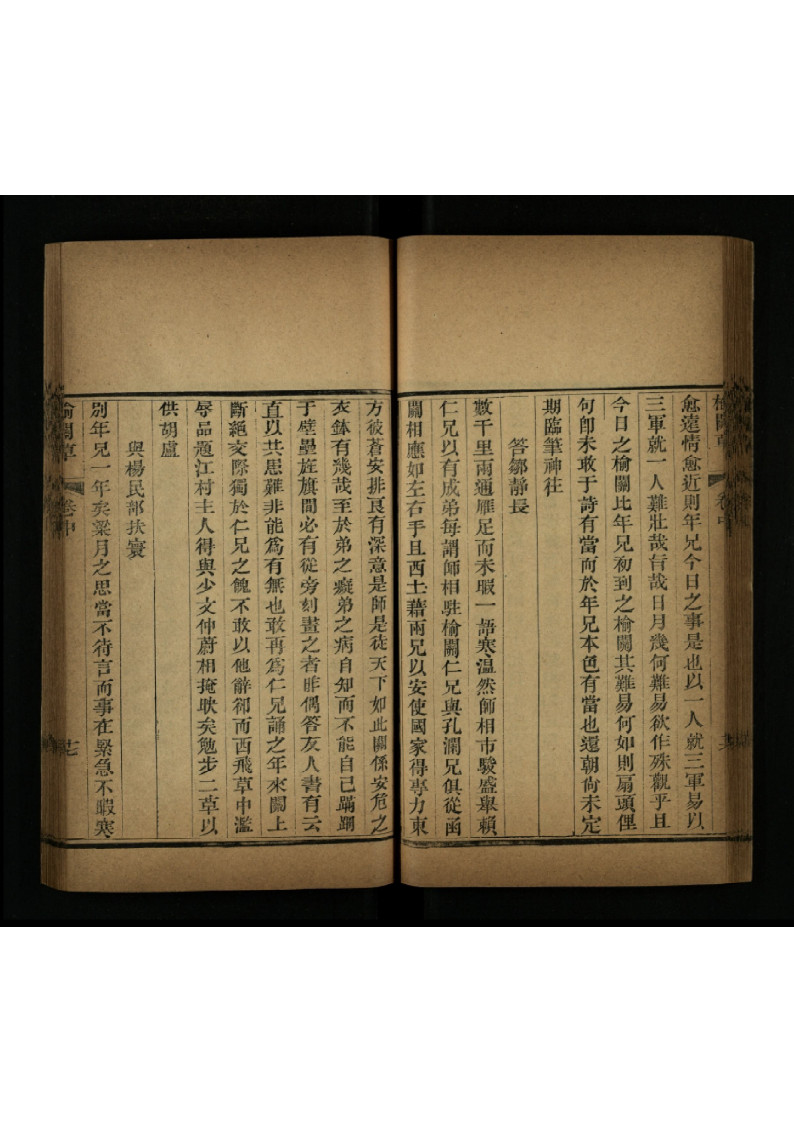 榆關草 卷中
愈遠情愈近則年兄今日之事是也以一人就三軍易以
三軍就一人難壯哉旨哉日月幾何難易欲作殊觀乎且
今日之榆關比年兄初到之榆關其難易何如則扇頭俚
句卽未敢于詩有當而於年兄本色有當也還朝尚未定
期臨筆神往
答鄒靜長
數千里兩通雁足而未暇一語寒溫然師相市駿盛舉賴
仁兄以有成弟每謂師相駐榆關仁兄與孔瀾兄俱從函
關相應如左右手且西土藉兩兄以安使國家得專力東
方彼蒼安排良有深意是師是徒天下如此關係安危之
衣鉢有幾哉至於弟之癡弟之病自知而不能自己蹣跚
于壁壘旌旗間必有從旁刻畫之者昨偶答友人書有云
直以共思難非能爲有無也敢再爲仁兄誦之年來關上
斷絕交際獨於仁兄之餽不敢以他辭郤而西飛草中濫
辱品題江村主人得與少文仲蔚相掩映矣勉步二草以
供胡盧
與楊民部扶寰
別年兄一年矣梁月之思當不待言而事在緊急不暇寒
榆關草 卷中